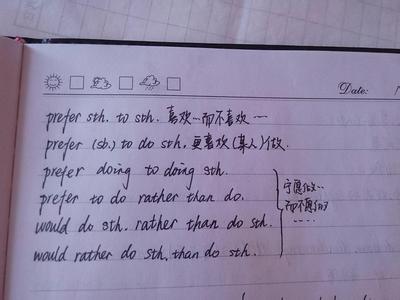 Date:
prefer sth. to sth. 喜欢…而不喜欢…
prefer (sb.) to do sth. 更喜欢(某人)做.
prefer doing to doing sth.
prefer to do rather than do.
would do sth. rather than do sth.
would rather do sth. than do sth.
宁愿做…
而不愿做
....